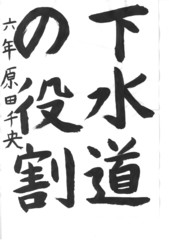 下水道
の役割
六年原田千央